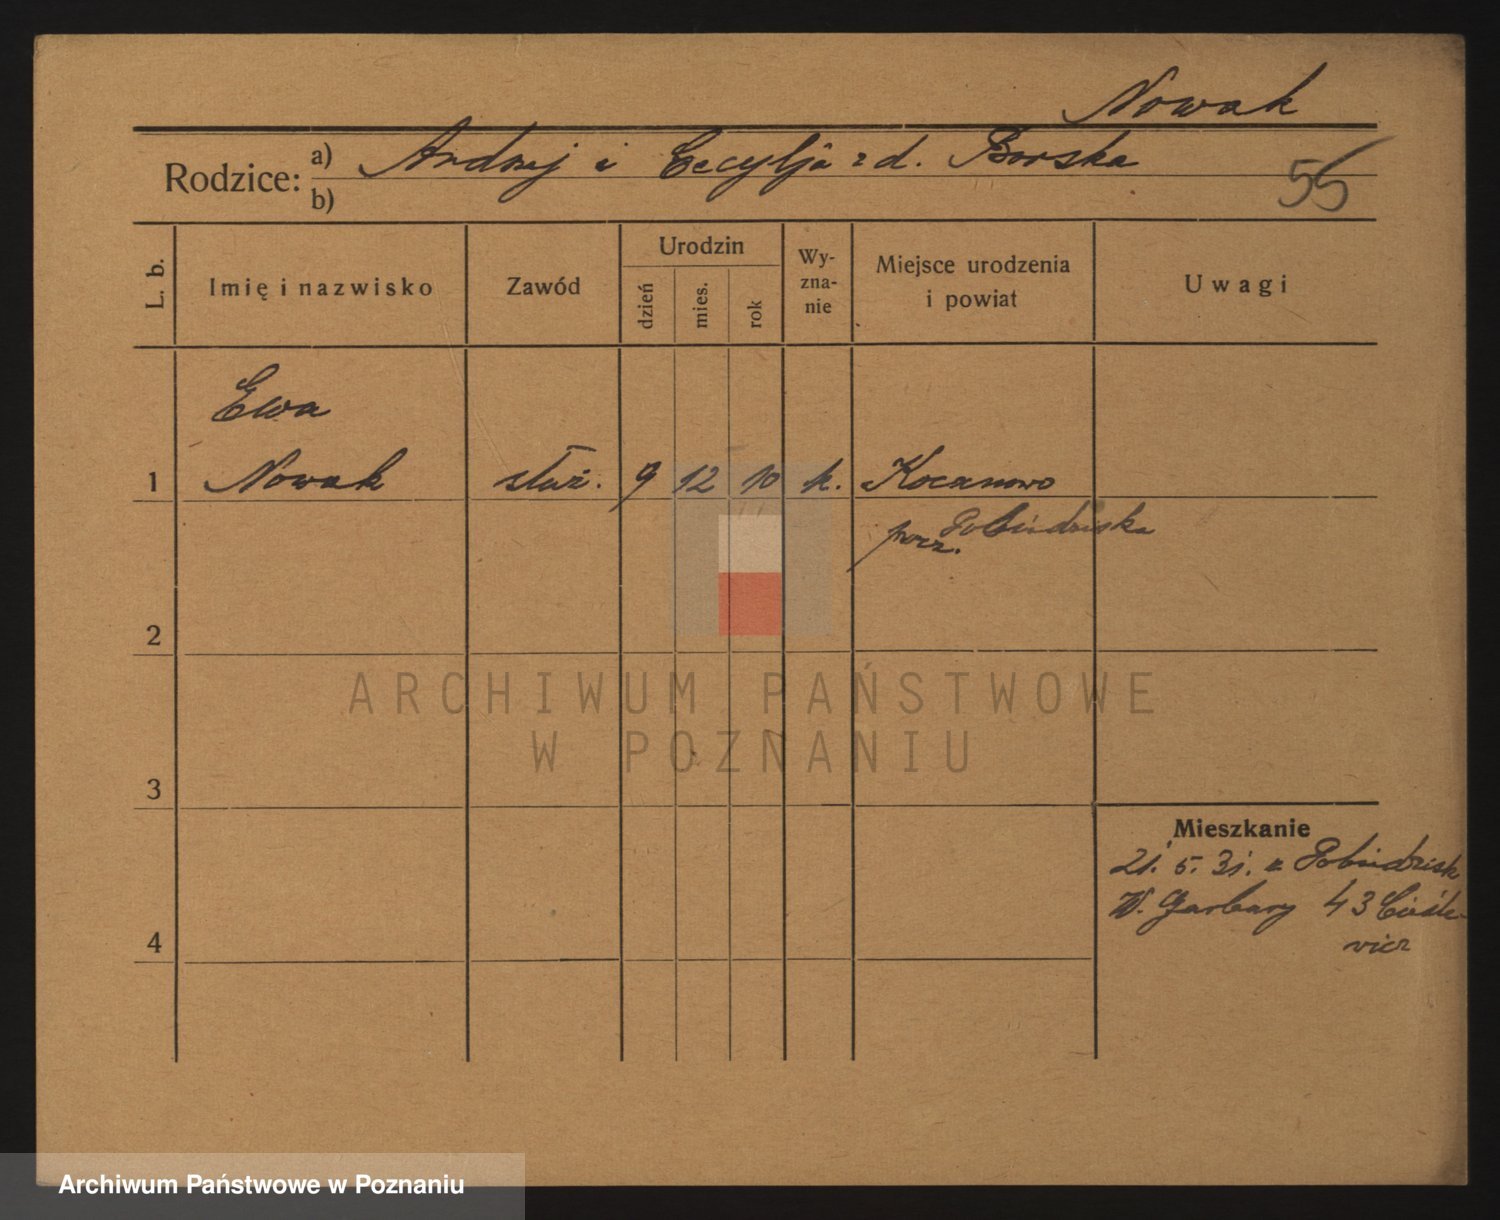 Nowak
Rodzice: a) Andrzej i Cecylja z d. Borska
b)
55
L. b.
Imię i nazwisko
Zawód
Urodzin
dzień
mies.
rok
Wy-
zna-
nie
Miejsce urodzenia
i powiat
Uwagi
Ewa
1 Nowak służ. 9 12 10 k. Kocanowo
pow. Pobiedziska
2
ARCHIWUM PAŃSTWOWE
W POZNANIU
3
Mieszkanie
21. 5. 31. z Pobiedzisk
W. Garbary 43
4
Archiwum Państwowe w Poznaniu